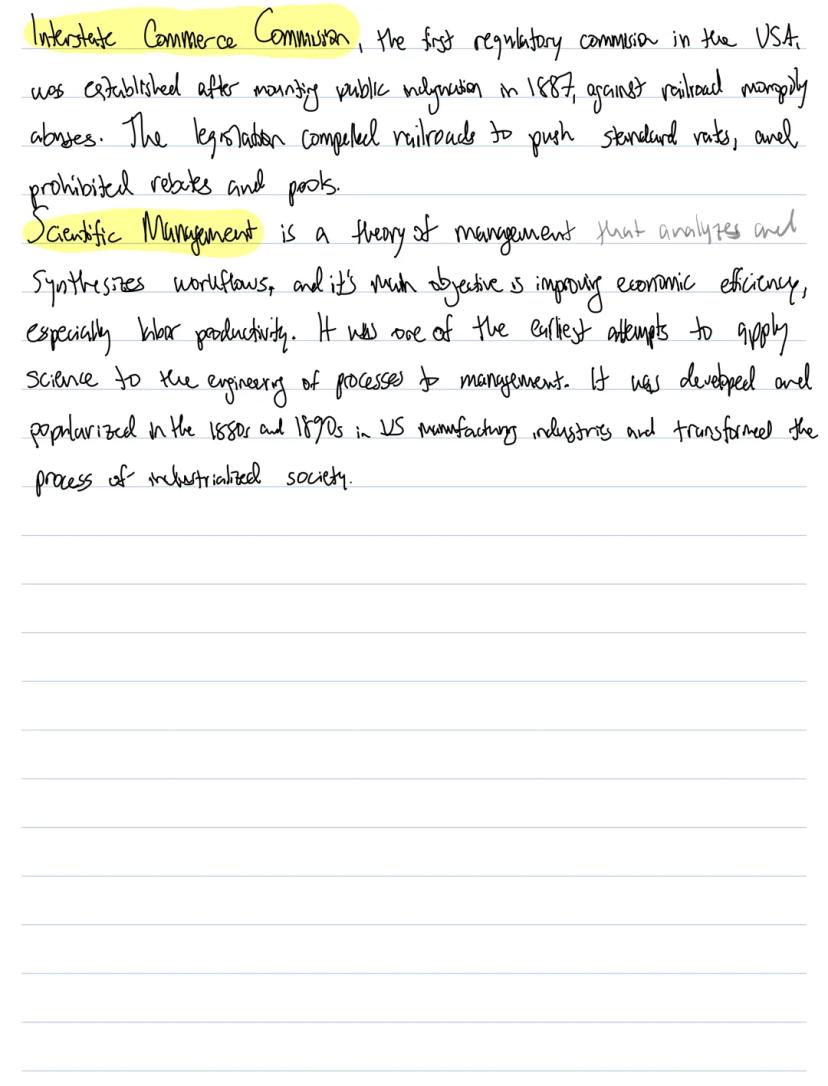 Interstate Commerce Commision, the first regulatory commision in the USA,
was established after mounting public indignation in 1887, against railroad monopoly
abuses. The legislation compelled railroads to push standard rates, and
prohibited rebates and pools.
Scientific Management is a theory of management that analyzes and
synthesizes workflows, and it's main objective is improving economic efficiency,
especially labor productivity. It was one of the earliest attempts to apply
science to the engineering of processes to management. It was developed and
popularized in the 1880s and 1890s in US manufacturing industries and transformed the
process of industrialized society.